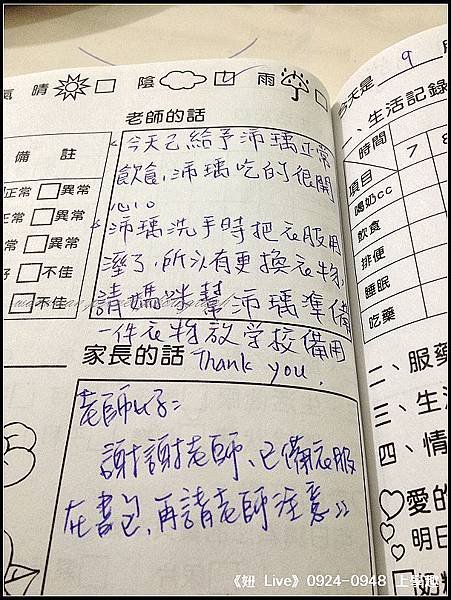 氣 晴 □ 陰 □ 雨 □
備 註
正常 □異常
正常 □異常
常 □異常
好 □不佳
□不佳
老師的話
今天已給予沛瑀正常
飲食,沛瑀吃的很開
心。
沛瑀洗手時把衣服用
溼了,所以有更換衣物,
請媽咪幫沛瑀準備
一件衣物放学校備用
Thank you.
家長的話
老師好:
謝謝老師、已備衣服
在書包,再請老師注意
今天是 9
一、生活記錄
時間 7 8
項目
喝奶cc
飲食
排便
睡眠
吃藥
二、服藥
三、生
四、情
愛的
明日
奶粉
《妞 Live》0924-0948 上學趣